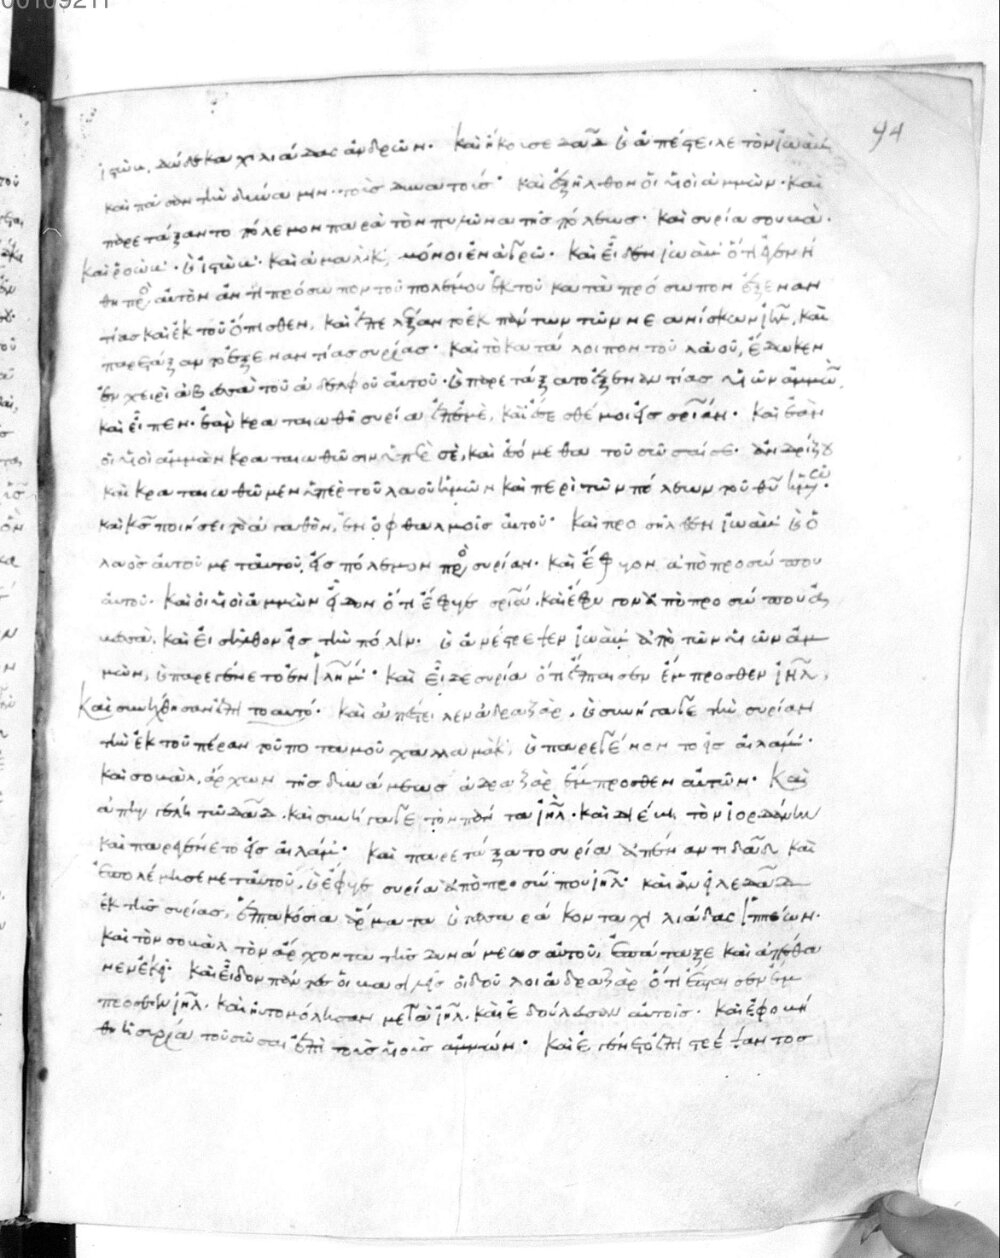 00109211
94
ἰστὼβ, δώδεκα χιλιάδας ἀνδρῶν. Καὶ ἤκουσε δαδ κ ἀπέστειλε τὸν ἰωὰβ
καὶ πᾶσαν τὴν δύναμιν τοὺς δυνατούς. καὶ ἐξῆλθον οἱ υἱοὶ ἀμμὼν. καὶ
παρετάξαντο πόλεμον παρὰ τὸν πυλῶνα τῆς πόλεως. καὶ συρία σουκὰ.
καὶ ροὼβ. κ ἰστὼβ. καὶ ἀμαλὶκ, μόνοι ἐν ἀγρῶ. καὶ εἶδεν ἰωὰβ ὅτι ἐγενή
θη πρὸς αὐτὸν ἀντιπρόσωπον τοῦ πολέμου ἐκ τοῦ κατὰ πρόσωπον ἐξεναν
τίας καὶ ἐκ τοῦ ὄπισθεν, καὶ ἐπελέξατο ἐκ πάντων τῶν νεανίσκων ιηλ, καὶ
παρετάξαντο ἐξεναντίας συρίας. καὶ τὸ κατάλοιπον τοῦ λαοῦ, ἔδωκεν
ἐν χειρὶ ἀβεσσὰ τοῦ ἀδελφοῦ αὐτοῦ. κ παρετάξατο ἐξεναντίας υἱῶν ἀμμὼ.
καὶ εἶπεν. ἐὰν κραταιωθῆ συρία ὑπὲρ ἐμὲ, καὶ ἔσεσθέ μοι εἰς σρίαν. καὶ ἐὰν
οἱ υἱοὶ ἀμμὼν κραταιωθῶσιν ὑπὲρ σὲ, καὶ ἐσόμεθα τοῦ σῶσαί σε. ἀνδρίζου
καὶ κραταιωθῶμεν ὑπὲρ τοῦ λαοῦ ἡμῶν καὶ περὶ τῶν πόλεων τοῦ θυ ἡμῶν.
καὶ κς ποιήσει τὸ ἀγαθὸν, ἐν ὀφθαλμοῖς αὐτοῦ. καὶ προσῆλθεν ἰωὰβ κ ὁ
λαὸς αὐτοῦ μετ αὐτοῦ, εἰς πόλεμον πρὸς συρίαν. καὶ ἔφυγον ἀπὸ προσώπου
αὐτοῦ. καὶ οἱ υἱοὶ ἀμμὼν εἶδον ὅτι ἔφυγε σρία. καὶ ἔφυγον ἀπὸ προσώπου ἀ
βεσσὰ. καὶ εἰσῆλθον εἰς τὴν πόλιν. κ ἀνέστρεψεν ἰωὰβ ἀπὸ τῶν υἱῶν ἀμ
μὼν, κ παρεγένετο ἐν ιλημ. καὶ εἶδε συρία ὅτι ἔπταισεν ἔμπροσθεν ιηλ,
καὶ συνήχθησαν ἐπὶ τοαυτό. καὶ ἀπέστειλεν ἀδραζὰρ, κ συνήγαγε τὴν συρίαν
τὴν ἐκ τοῦ πέραν τοῦ ποταμοῦ χαλλαμὰκ, κ παρεγένοντο εἰς αἰλάμ.
καὶ σοκὰλ, ἄρχων τῆς δυνάμεως ἀδραζὰρ ἔμπροσθεν αὐτῶν. Καὶ
ἀπηγγέλη τῶ δαδ. καὶ συνήγαγε τὸν πάντα ιηλ. καὶ διέβη τὸν ἰορδάνην
καὶ παρεγένετο εἰς αἰλάμ. καὶ παρετάξατο συρία ἀπέναντι δαδ καὶ
ἐπολέμησε μετ αὐτοῦ, κ ἔφυγε συρία ἀπὸ προσώπου ιηλ. καὶ ἀνεῖλε δαδ
ἐκ τῆς συρίας, ἑπτακόσια ἅρματα κ τεσσαράκοντα χιλιάδας ἱππέων.
καὶ τὸν σοκὰλ τὸν ἄρχοντα τῆς δυνάμεως αὐτοῦ, ἐπάταξε καὶ ἀπέθα
νεν ἐκεῖ. καὶ εἶδον πάντες οἱ βασιλεῖς οἱ δοῦλοι ἀδραζὰρ ὅτι ἔπταισεν ἔμ
προσθεν ιηλ. καὶ ηὐτομόλησαν μετὰ ιηλ. καὶ ἐδούλευσαν αὐτοῖς. καὶ ἐφοβή
θη ἡ συρία τοῦ σῶσαι ἔτι τοὺς υἱοὺς ἀμμών. καὶ ἐγένετο ἐπιστρέψαντος